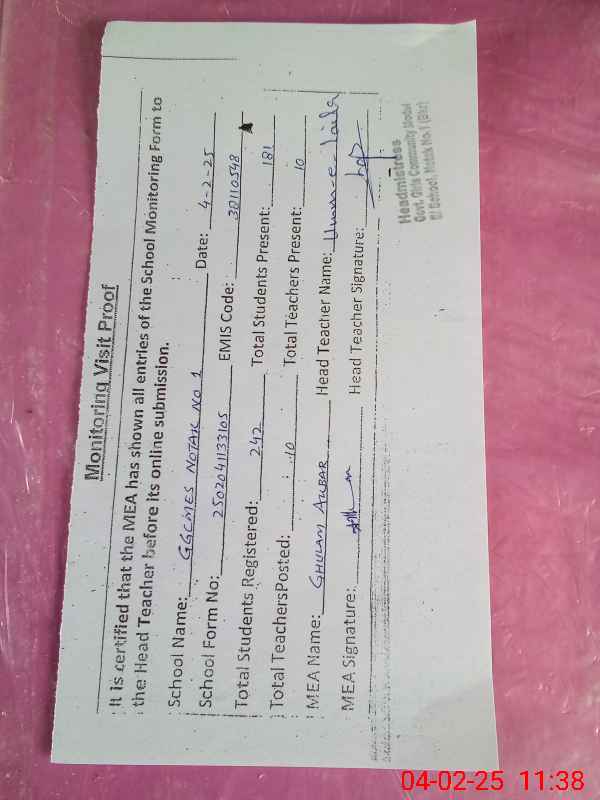 Monitoring Visit Proof
It is certified that the MEA has shown all entries of the School Monitoring Form to
the Head Teacher before its online submission.
School Name: GGCMES NOTAK NO 1 Date: 4-2-25
School Form No: 2502041133105 EMIS Code: 30110548
Total Students Registered: 242 Total Students Present: 181
Total TeachersPosted: 10 Total Teachers Present: 10
MEA Name: GHULAM AKBAR Head Teacher Name: Umm-e-Laila
MEA Signature: Head Teacher Signature:
Headmistress
Govt. Girls Community Model
El School, Notak No.1 (Bkr)
04-02-25 11:38